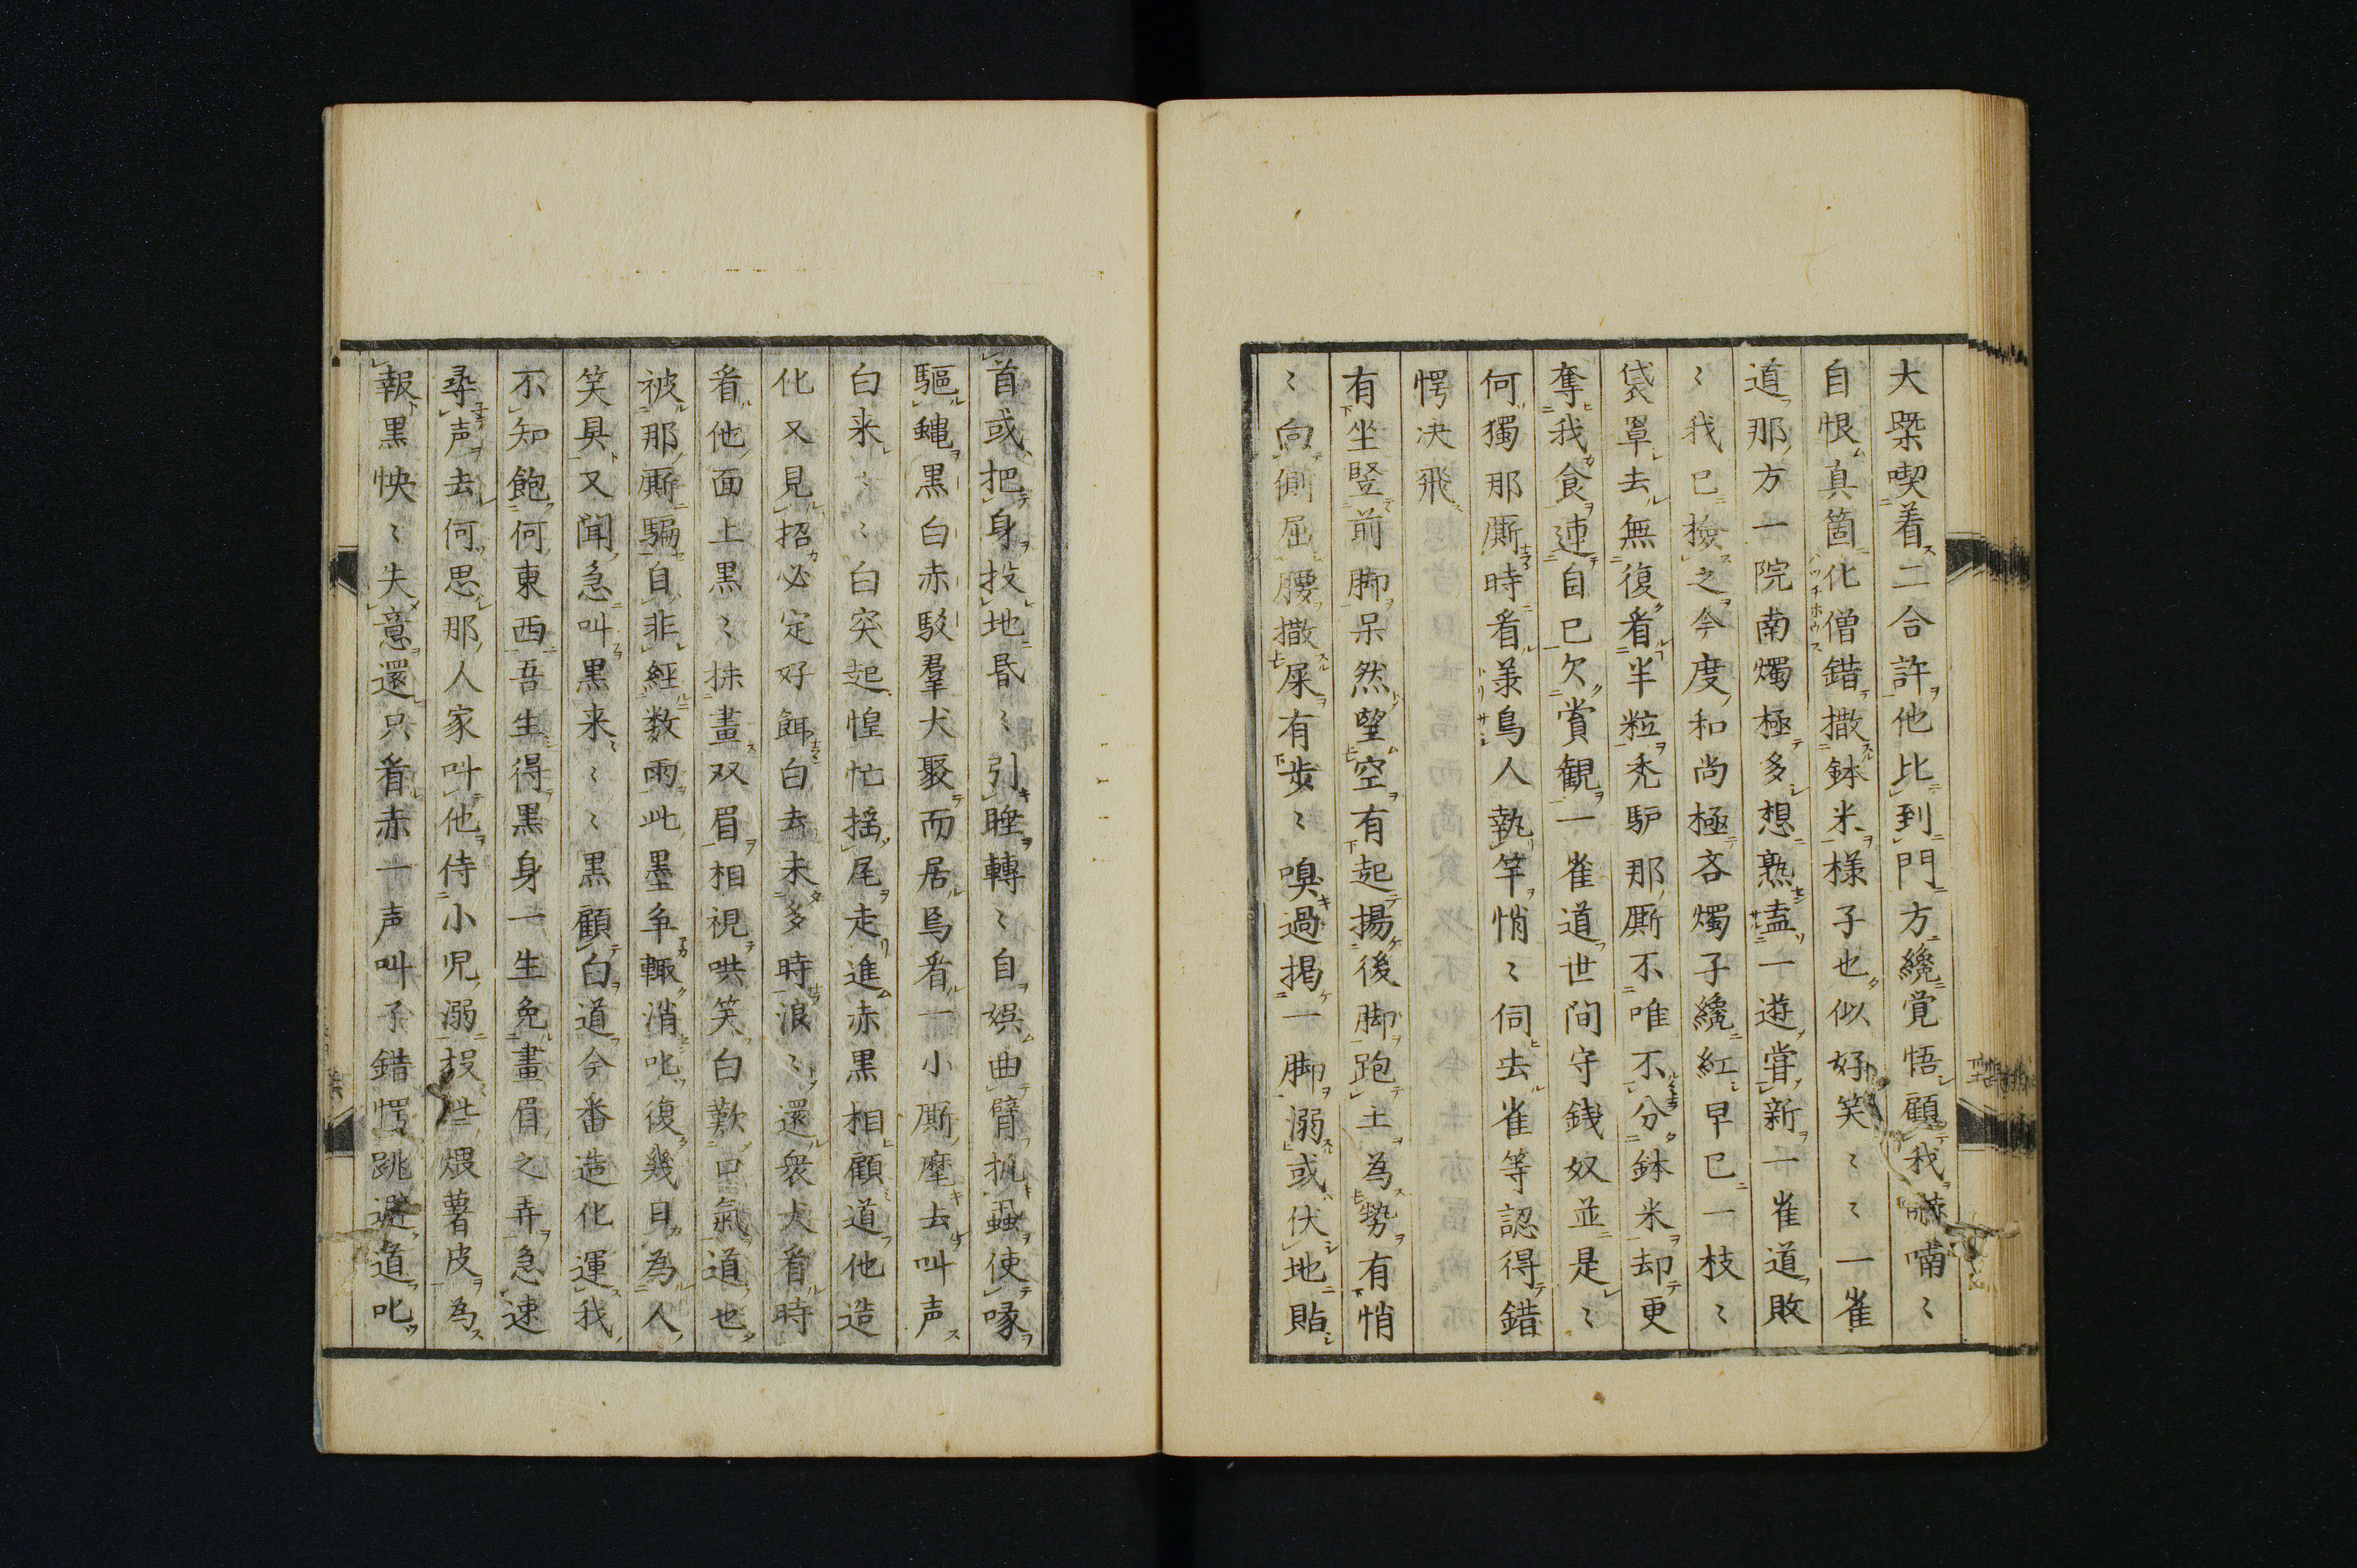 大槩喫着二合許他比到門方纔覚悟顧我喃〻
自恨真箇化僧錯撒鉢米様子也似好笑〻〻一雀
道那方一院南燭極多想熟盍一遊嘗新一雀道敗
〻我已撿之今度和尚極吝燭子纔紅早已一枝〻
袋罩去無復看半粒禿驴那厮不唯不分鉢米却更
奪我食迚自已欠賞観一雀道世间守銭奴並是〻
何獨那厮時看兼鳥人執竿悄〻伺去雀等認得錯
愕决飛
有坐竪前脚呆然望空有起揚後脚跑土為勢有悄
〻向側屈腰撒屎有歩〻嗅過掲一脚溺或伏地貼
首或把身投地昬〻引睡轉〻自娯曲臂抓蝨使喙
驅蝿黒白赤駁羣犬聚而居烏看一小厮麾去叫声
白来〻〻白突起惶忙揺尾走進赤黒相顧道他造
化又見招必定好餌白去未多時浪〻還衆犬看時
看他面上黒〻抹畫双眉相視哄笑白歎口氣道也
被那厮騙自非経数雨此墨争輙消叱復幾日為人
笑具又聞急叫黒来〻〻黒顧白道今番造化運我
不知飽何東西吾生得黒身一生免畫眉之弄急速
尋声去何思那人家叫他侍小児溺投些煨薯皮為
報黒怏〻失意還只看赤一声叫子錯愕跳避道叱